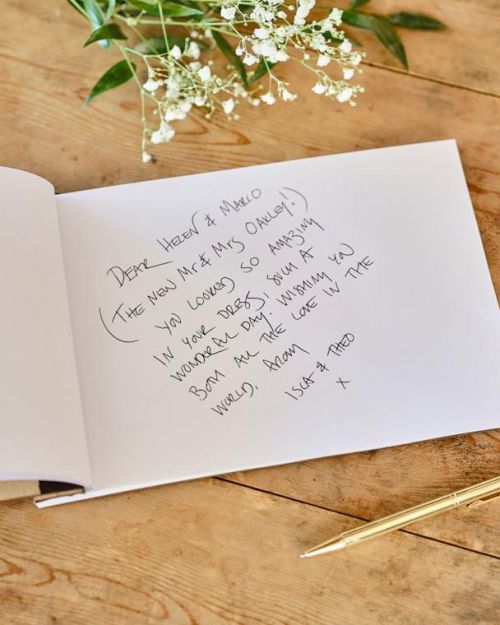 Dear Helen & Marco
(The new Mr & Mrs Oakley!)
You looked so amazing
in your dress, such a
wonderful day. Wishing you
both all the love in the
world, from
Isla & Theo
x